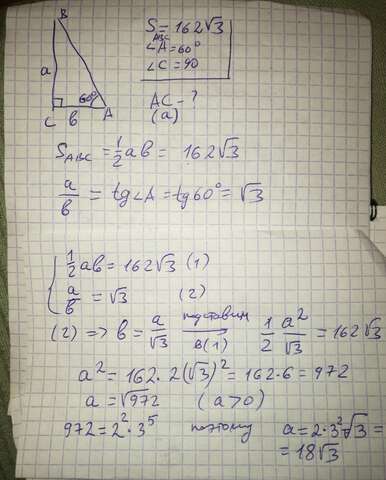 B
S_{ABC} = 162√3
∠A = 60°
∠C = 90
a
60°
C b A
AC - ?
(a)
S_{ABC} = \frac{1}{2}ab = 162√3
\frac{a}{b} = tg∠A = tg60° = √3
{ \frac{1}{2}ab = 162√3 (1)
\frac{a}{b} = √3 (2)
(2) => b = \frac{a}{√3} подставим в (1) → \frac{1}{2} \frac{a^2}{√3} = 162√3
a^2 = 162 · 2(√3)^2 = 162·6 = 972
a = √972 (a>0)
972 = 2^2 · 3^5 поэтому a = 2·3^2√3 =
= 18√3